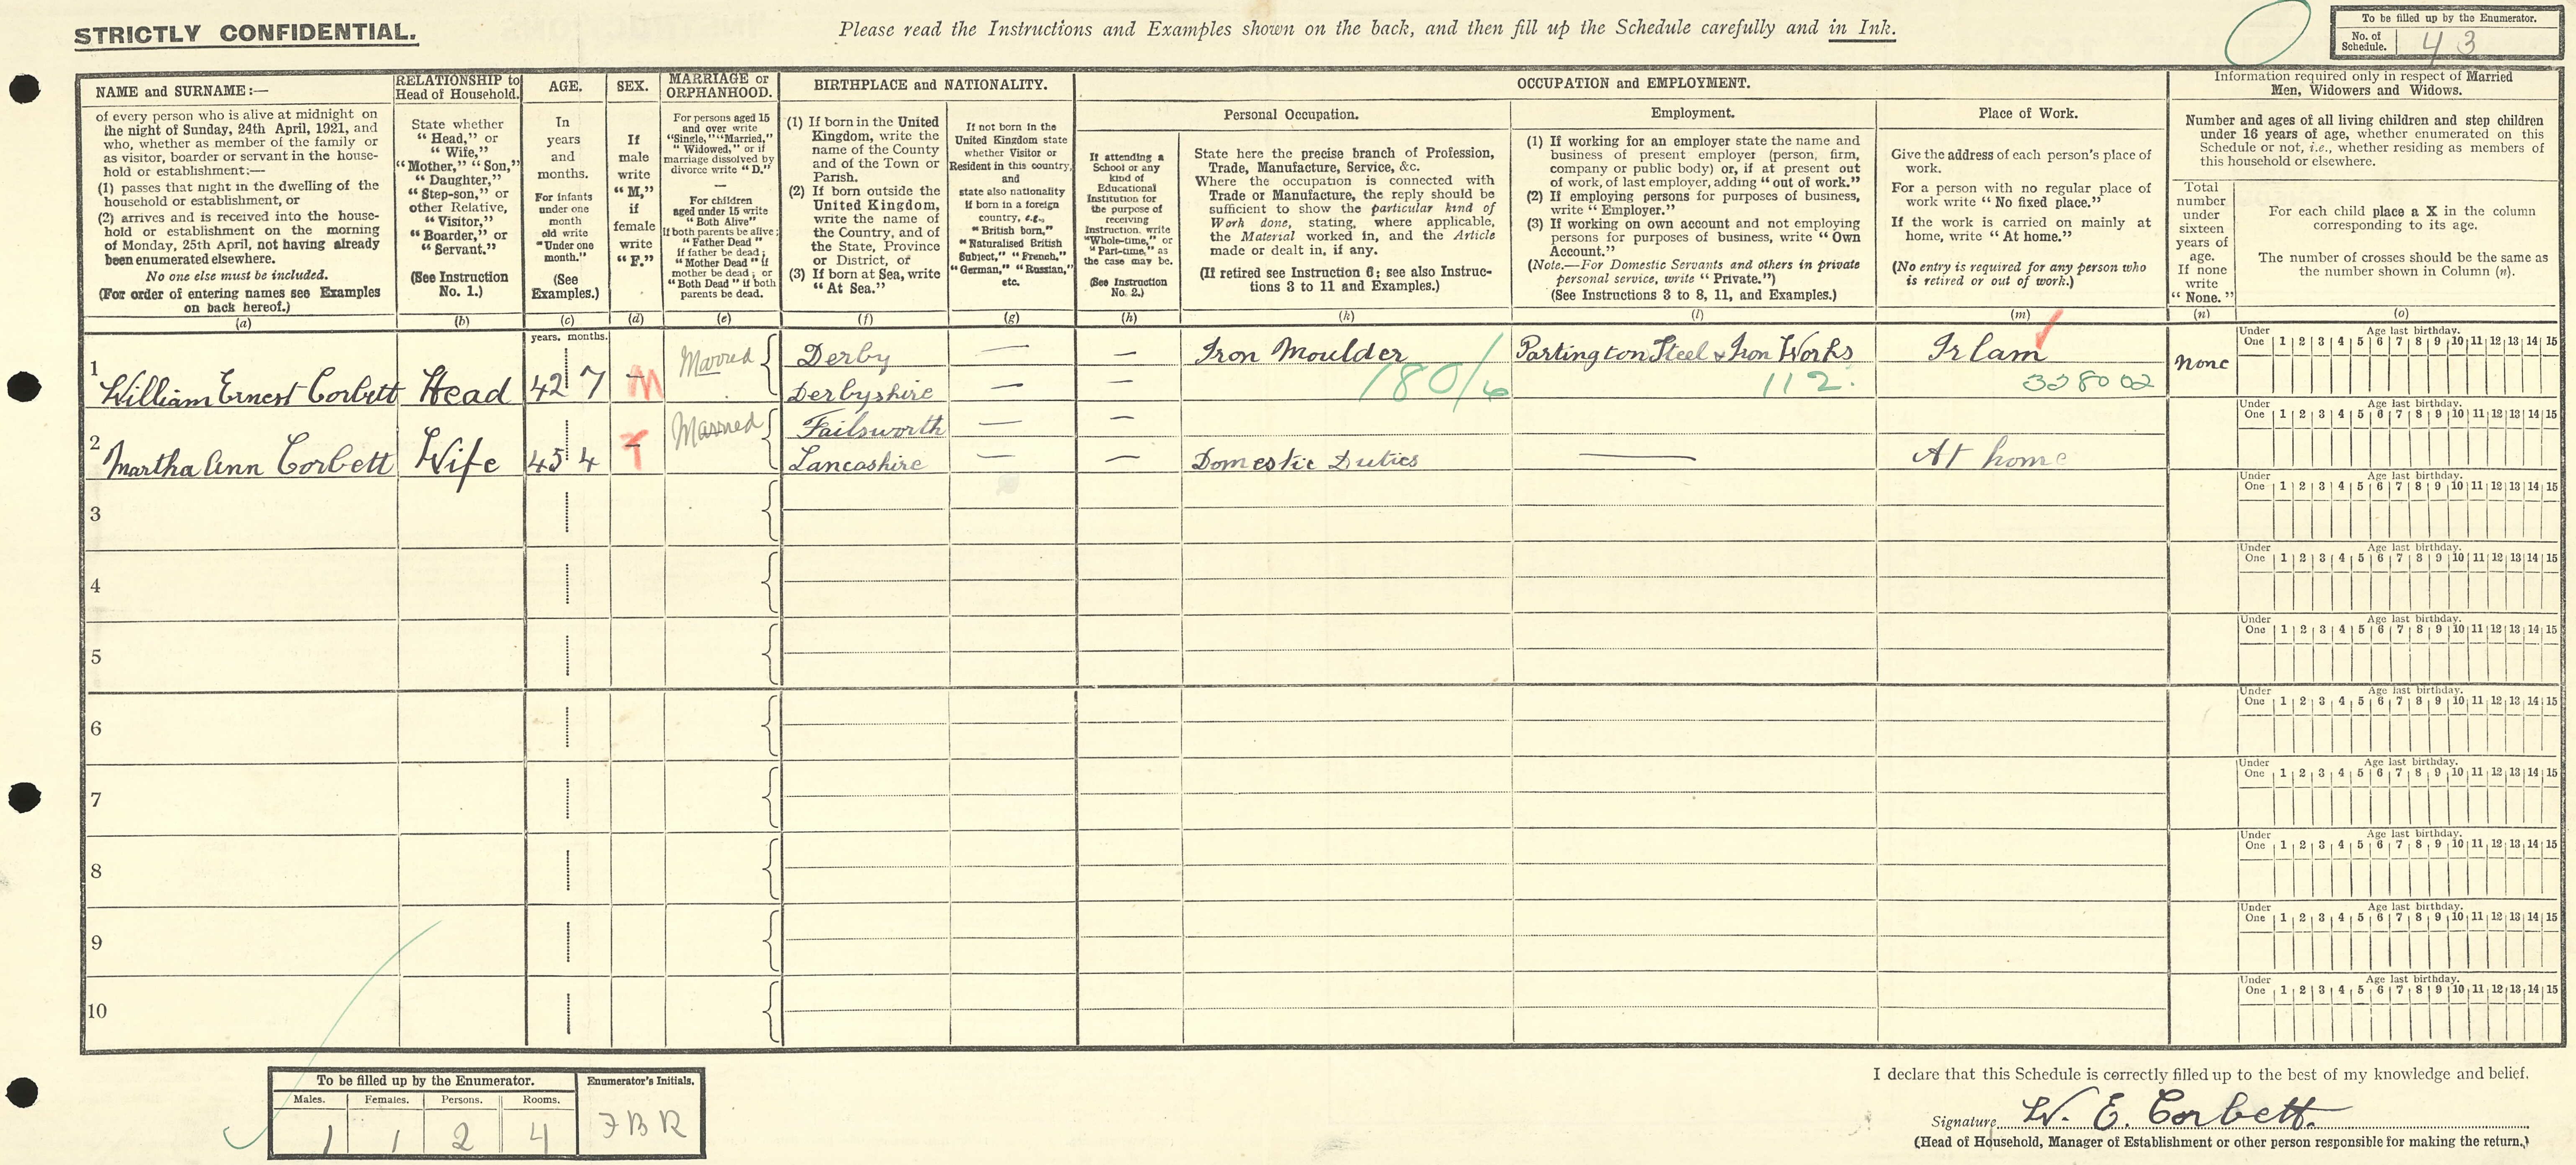 STRICTLY CONFIDENTIAL.
Please read the Instructions and Examples shown on the back, and then fill up the Schedule carefully and in Ink.
To be filled up by the Enumerator.
No. of Schedule. 43
NAME and SURNAME:—
of every person who is alive at midnight on
the night of Sunday, 24th April, 1921, and
who, whether as member of the family or
as visitor, boarder or servant in the house-
hold or establishment:—
(1) passes that night in the dwelling of the
household or establishment, or
(2) arrives and is received into the house-
hold or establishment on the morning
of Monday, 25th April, not having already
been enumerated elsewhere.
No one else must be included.
(For order of entering names see Examples
on back hereof.)
(a)
RELATIONSHIP to
Head of Household.
State whether
"Head," or
"Wife,"
"Mother," "Son,"
"Daughter,"
"Step-son," or
other Relative,
"Visitor,"
"Boarder," or
"Servant."
(See Instruction
No. 1.)
(b)
AGE.
In
years
and
months.
For infants
under one
month
old write
"Under one
month."
(See
Examples.)
(c)
SEX.
If
male
write
"M,"
if
female
write
"F."
(d)
MARRIAGE or
ORPHANHOOD.
For persons aged 15
and over write
"Single," "Married,"
"Widowed," or if
marriage dissolved by
divorce write "D."
—
For children
aged under 15 write
"Both Alive"
if both parents be alive;
"Father Dead"
if father be dead;
"Mother Dead" if
mother be dead; or
"Both Dead" if both
parents be dead.
(e)
BIRTHPLACE and NATIONALITY.
(1) If born in the United
Kingdom, write the
name of the County
and of the Town or
Parish.
(2) If born outside the
United Kingdom,
write the name of
the Country, and of
the State, Province
or District, of
(3) If born at Sea, write
"At Sea."
(f)
If not born in the
United Kingdom state
whether Visitor or
Resident in this country,
and
state also nationality
If born in a foreign
country, e.g.,
"British born,"
"Naturalised British
Subject," "French,"
"German," "Russian,"
etc.
(g)
OCCUPATION and EMPLOYMENT.
Personal Occupation.
If attending a
School or any
kind of
Educational
Institution for
the purpose of
receiving
Instruction. write
"Whole-time," or
"Part-time," as
the case may be.
(See Instruction
No. 2.)
(h)
State here the precise branch of Profession,
Trade, Manufacture, Service, &c.
Where the occupation is connected with
Trade or Manufacture, the reply should be
sufficient to show the particular kind of
Work done, stating, where applicable,
the Material worked in, and the Article
made or dealt in, if any.
(If retired see Instruction 6; see also Instruc-
tions 3 to 11 and Examples.)
(k)
Employment.
(1) If working for an employer state the name and
business of present employer (person, firm,
company or public body) or, if at present out
of work, of last employer, adding "out of work."
(2) If employing persons for purposes of business,
write "Employer."
(3) If working on own account and not employing
persons for purposes of business, write "Own
Account."
(Note.—For Domestic Servants and others in private
personal service, write "Private.")
(See Instructions 3 to 8, 11, and Examples.)
(l)
Place of Work.
Give the address of each person's place of
work.
For a person with no regular place of
work write "No fixed place."
If the work is carried on mainly at
home, write "At home."
(No entry is required for any person who
is retired or out of work.)
(m)
Information required only in respect of Married
Men, Widowers and Widows.
Number and ages of all living children and step children
under 16 years of age, whether enumerated on this
Schedule or not, i.e., whether residing as members of
this household or elsewhere.
Total
number
under
sixteen
years of
age.
If none
write
"None."
(n)
For each child place a X in the column
corresponding to its age.
The number of crosses should be the same as
the number shown in Column (n).
(o)
years. months.
1 William Ernest Corbett Head 42 7 M Married Derby — — Iron Moulder Partington Steel & Iron Works Irlam None
Derbyshire — — 180/6 112. 338002
Under One Age last birthday. 1 2 3 4 5 6 7 8 9 10 11 12 13 14 15
2 Martha Ann Corbett Wife 45 4 F Married Failsworth — —
Lancashire — — Domestic Duties — At home
Under One Age last birthday. 1 2 3 4 5 6 7 8 9 10 11 12 13 14 15
3
Under One Age last birthday. 1 2 3 4 5 6 7 8 9 10 11 12 13 14 15
4
Under One Age last birthday. 1 2 3 4 5 6 7 8 9 10 11 12 13 14 15
5
Under One Age last birthday. 1 2 3 4 5 6 7 8 9 10 11 12 13 14 15
6
Under One Age last birthday. 1 2 3 4 5 6 7 8 9 10 11 12 13 14 15
7
Under One Age last birthday. 1 2 3 4 5 6 7 8 9 10 11 12 13 14 15
8
Under One Age last birthday. 1 2 3 4 5 6 7 8 9 10 11 12 13 14 15
9
Under One Age last birthday. 1 2 3 4 5 6 7 8 9 10 11 12 13 14 15
10
Under One Age last birthday. 1 2 3 4 5 6 7 8 9 10 11 12 13 14 15
To be filled up by the Enumerator.
Males. Females. Persons. Rooms.
1 1 2 4
Enumerator's Initials.
FBR
I declare that this Schedule is correctly filled up to the best of my knowledge and belief.
Signature W. E. Corbett.
(Head of Household, Manager of Establishment or other person responsible for making the return.)